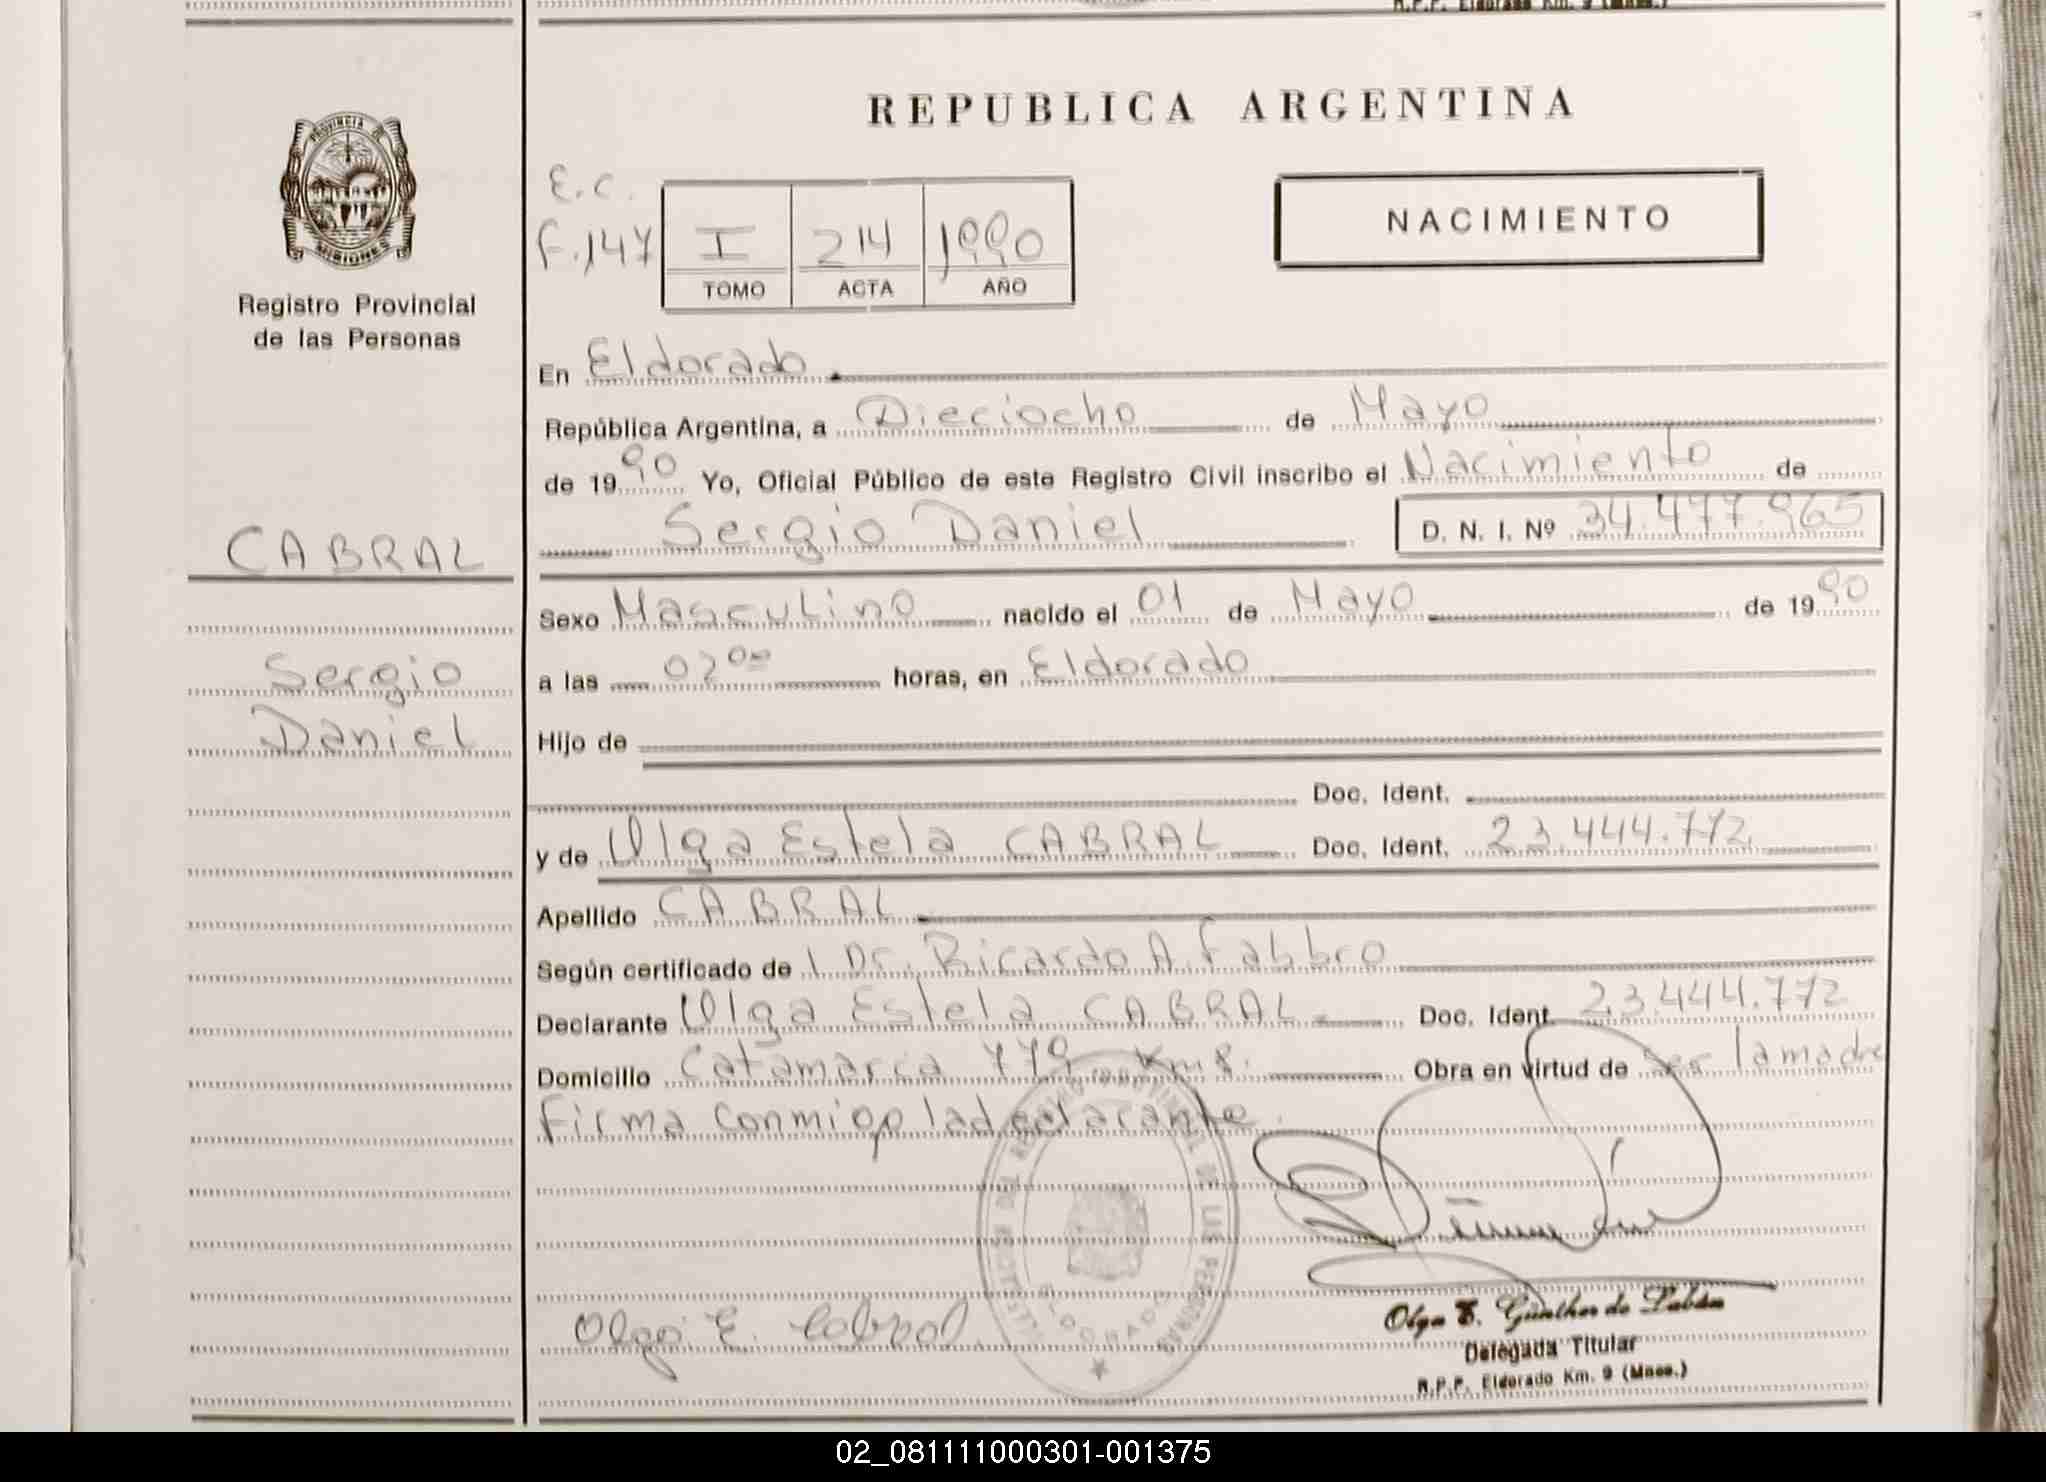 R.P.P. Eldorado Km. 9 (Mnes.)
REPUBLICA ARGENTINA
PROVINCIA DE
MISIONES
Registro Provincial
de las Personas
E.C.
F.147
I 214 1990
TOMO ACTA AÑO
NACIMIENTO
En Eldorado
República Argentina, a Dieciocho de Mayo
de 1990 Yo, Oficial Público de este Registro Civil inscribo el Nacimiento de
Sergio Daniel D. N. I. Nº 34.477.965
CABRAL
Sexo Masculino nacido el 01 de Mayo de 1990
Sergio
Daniel
a las 02 00 horas, en Eldorado
Hijo de
Doc. Ident.
y de Olga Estela CABRAL Doc. Ident. 23.444.772
Apellido CABRAL
Según certificado de Dr. Ricardo A. Fabbro
Declarante Olga Estela CABRAL Doc. Ident. 23.444.772
Domicilio Catamarca 779 Km 8. Obra en virtud de ser la madre
Firma conmigo la declarante.
ELDORADO
Olga E. Cabral
Olga E. Günther de Labán
Delegada Titular
R.P.P. Eldorado Km. 9 (Mnes.)
02_081111000301-001375